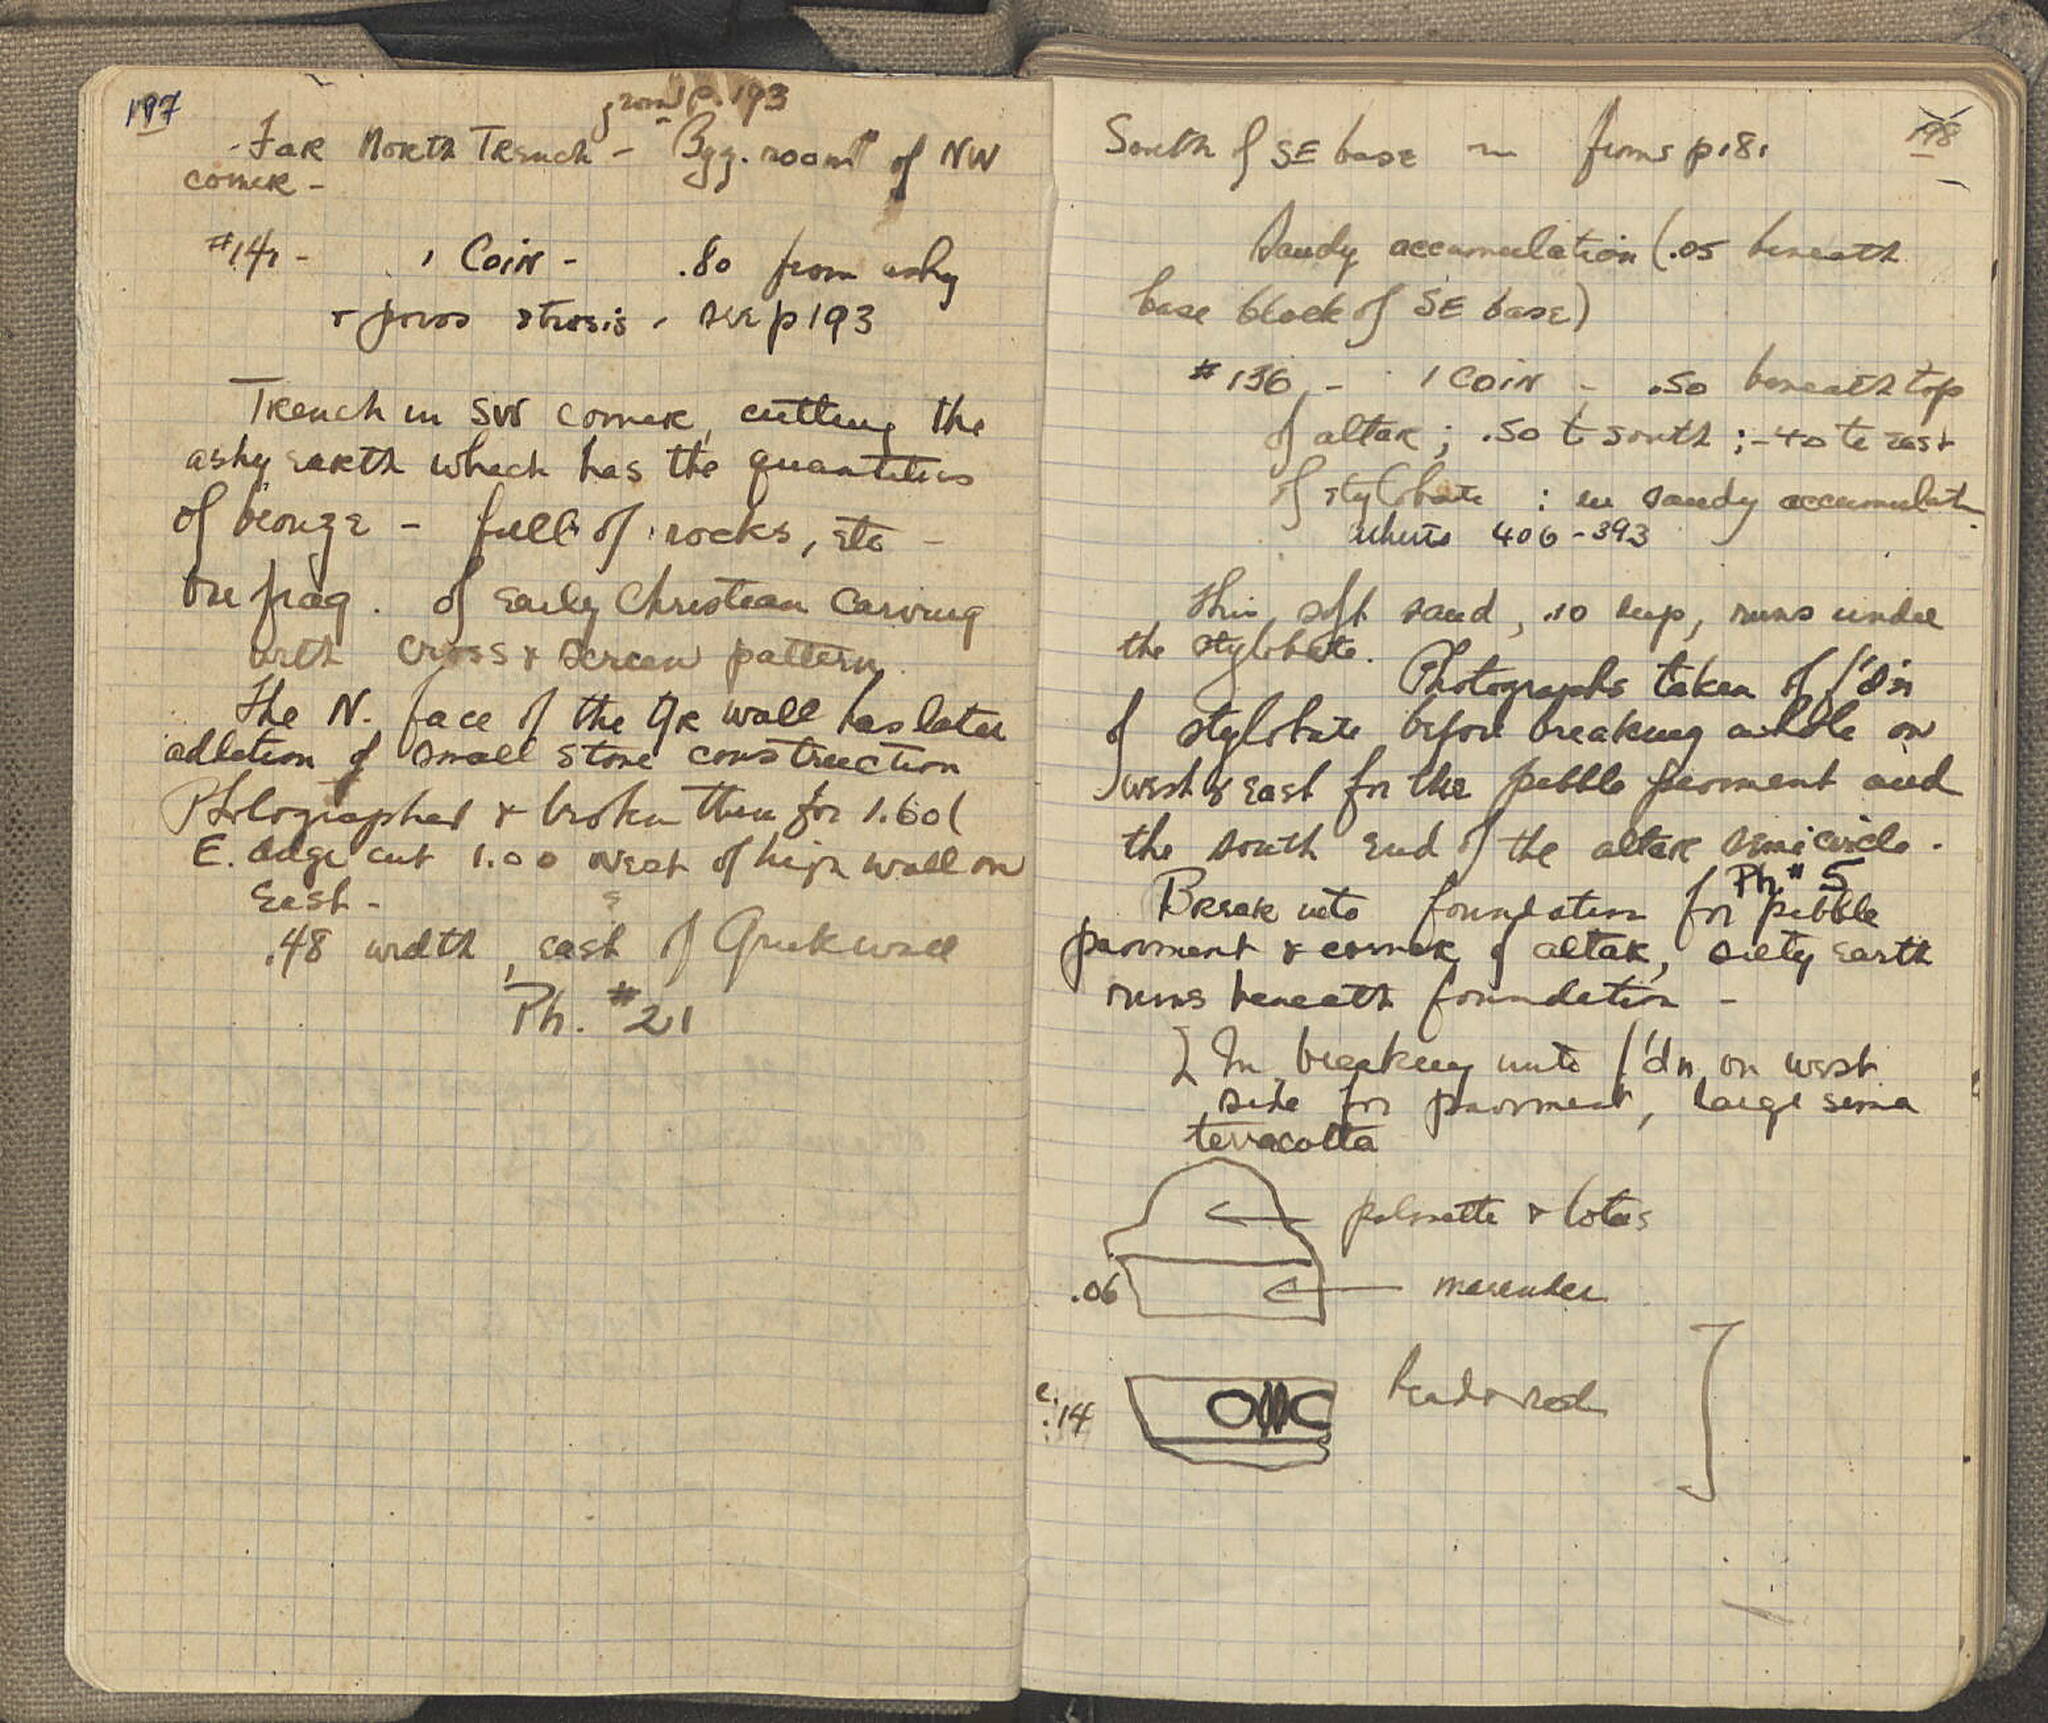 197
from p. 193
Far North Trench - Byz. room of NW
corner -
#141 - 1 Coin - .80 from ashy
+ poros strosis, see p 193
Trench in SW corner, cutting the
ashy earth which has the quantities
of bronze - full of rocks, etc -
One frag. of Early Christian carving
with cross & screen pattern.
The N. face of the Gk wall has later
addition of small stone construction
Photographed & broken then for 1.60 (
E. edge cut 1.00 west of high wall on
East -
.48 width, east of Greek wall
Ph. #21
198
South of SE base ~ from p 181
Sandy accumulation (.05 beneath
base block of SE base)
#136, - 1 coin - .50 beneath top
of altar; .50 to south; .40 to east
of stylobate : in sandy accumulat
where 406-393
This soft sand, .10 deep, runs under
the stylobate. Photographs taken of f'd'n
of stylobate before breaking a hole on
west & east for the pebble pavement and
the south end of the altar semicircle.
Ph. #5
Break into foundation for pebble
pavement & corner of altar, silty earth
runs beneath foundation -
In breaking into f'dn on west
side for pavement, large sima
terracotta
palmette & lotus
.06 meander
c. .14 bead & reel